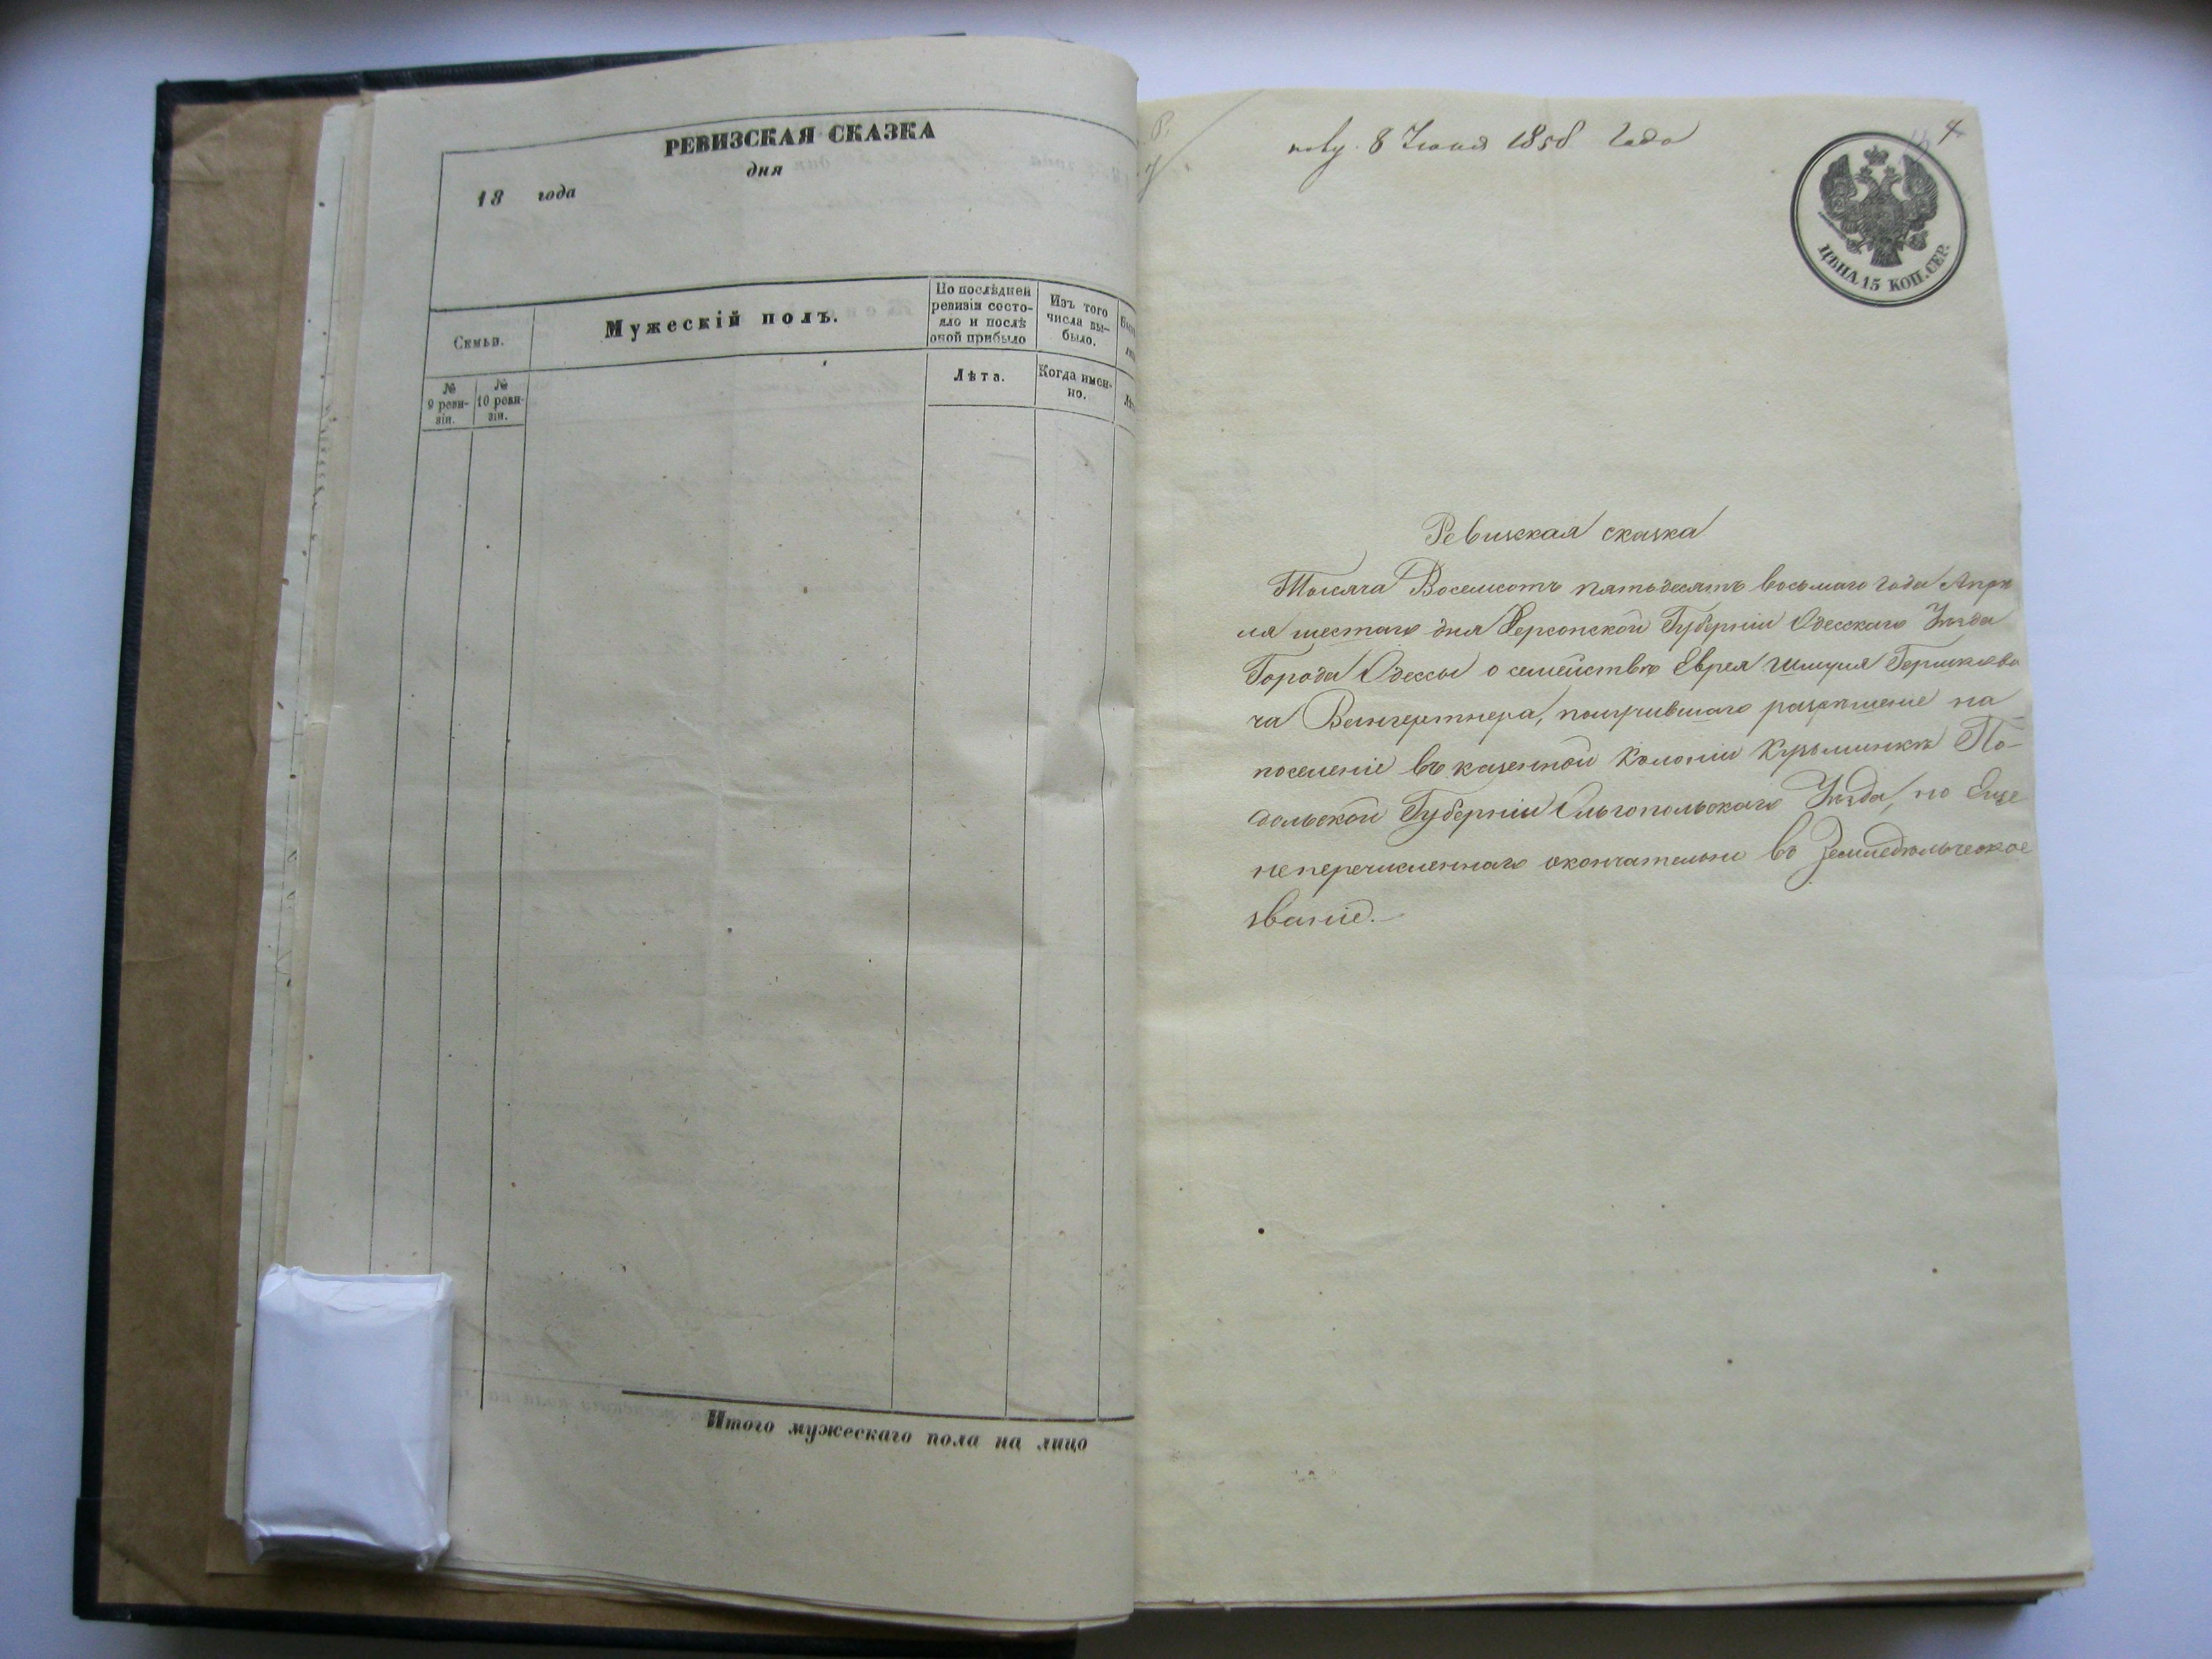 РЕВИЗСКАЯ СКАЗКА
18 года дня
Семьи.
Мужескій полъ.
По послѣдней
ревизіи состо-
яло и послѣ
оной прибыло
Изъ того
числа вы-
было.
№
9 реви-
зіи.
№
10 реви-
зіи.
Лѣта.
Когда имен-
но.
Итого мужескаго пола на лицо
8 Іюня 1858 Года
4
ЦѢНА 15 КОП. СЕР.
Ревизская сказка
Тысяча Восемсотъ пятьдесятъ восьмаго года Апрѣ
ля шестаго дня Херсонской Губерніи Одесскаго Уѣзда
Города Одессы о семействѣ Еврея Шмуля Гершкови
ча Вейнгертнера, получившаго разрѣшеніе на
поселеніе въ казенной Колоніи Кузьминкѣ По-
дольской Губерніи Ольгопольскаго Уѣзда, но Еще
неперечисленнаго окончательно въ Земледѣльческое
званіе.